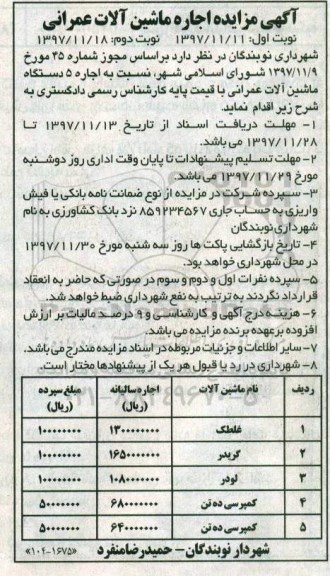 آگهی مزایده اجاره ماشین آلات عمرانی
نوبت اول: ۱۳۹۷/۱۱/۱۱ نوبت دوم: ۱۳۹۷/۱۱/۱۸
شهرداری نوبندگان در نظر دارد براساس مجوز شماره ۴۵ مورخ
۱۳۹۷/۱۱/۹ شورای اسلامی شهر، نسبت به اجاره ۵ دستگاه
ماشین آلات عمرانی با قیمت پایه کارشناس رسمی دادگستری به
شرح زیر اقدام نماید.
۱- مهلت دریافت اسناد از تاریخ ۱۳۹۷/۱۱/۱۳ تا
۱۳۹۷/۱۱/۲۸ می باشد.
۲- مهلت تسلیم پیشنهادات تا پایان وقت اداری روز دوشنبه
مورخ ۱۳۹۷/۱۱/۲۹ می باشد.
۳- سپرده شرکت در مزایده از نوع ضمانت نامه بانکی یا فیش
واریزی به حساب جاری ۸۵۹۲۳۴۵۶۷ نزد بانک کشاورزی به نام
شهرداری نوبندگان
۴- تاریخ بازگشایی پاکت ها روز سه شنبه مورخ ۱۳۹۷/۱۱/۳۰
در محل شهرداری خواهد بود.
۵- سپرده نفرات اول و دوم و سوم در صورتی که حاضر به انعقاد
قرارداد نگردند به ترتیب به نفع شهرداری ضبط خواهد شد.
۶- هزینه درج آگهی و کارشناسی و ۹ درصد مالیات بر ارزش
افزوده برعهده برنده مزایده می باشد.
۷- سایر اطلاعات و جزئیات مربوطه در اسناد مزایده مندرج می باشد.
۸- شهرداری در رد یا قبول هر یک از پیشنهادها مختار است.
ردیف نام ماشین آلات اجاره سالیانه (ریال) مبلغ سپرده (ریال)
۱ غلطک ۱۳۰۰۰۰۰۰۰ ۱۰۰۰۰۰۰۰
۲ گریدر ۱۶۵۰۰۰۰۰۰ ۱۰۰۰۰۰۰۰
۳ لودر ۱۰۸۰۰۰۰۰۰ ۱۰۰۰۰۰۰۰
۴ کمپرسی ده تن ۶۸۰۰۰۰۰۰ ۵۰۰۰۰۰۰
۵ کمپرسی ده تن ۶۴۰۰۰۰۰۰ ۵۰۰۰۰۰۰
شهردار نوبندگان - حمیدرضا منفرد «۱۰۴-۱۶۷۵»